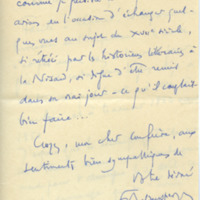 comme je
avions eu l'occasion d'échanger quel-
ques vues au sujet du XVIIe siècle,
si par les historiens littéraires à
la Nisard, si digne d'être remis
dans son vrai jour - ce qu'il comptait
bien faire...
Croyez, mon cher confrère, aux
sentiments bien sympathiques de
votre dévoué